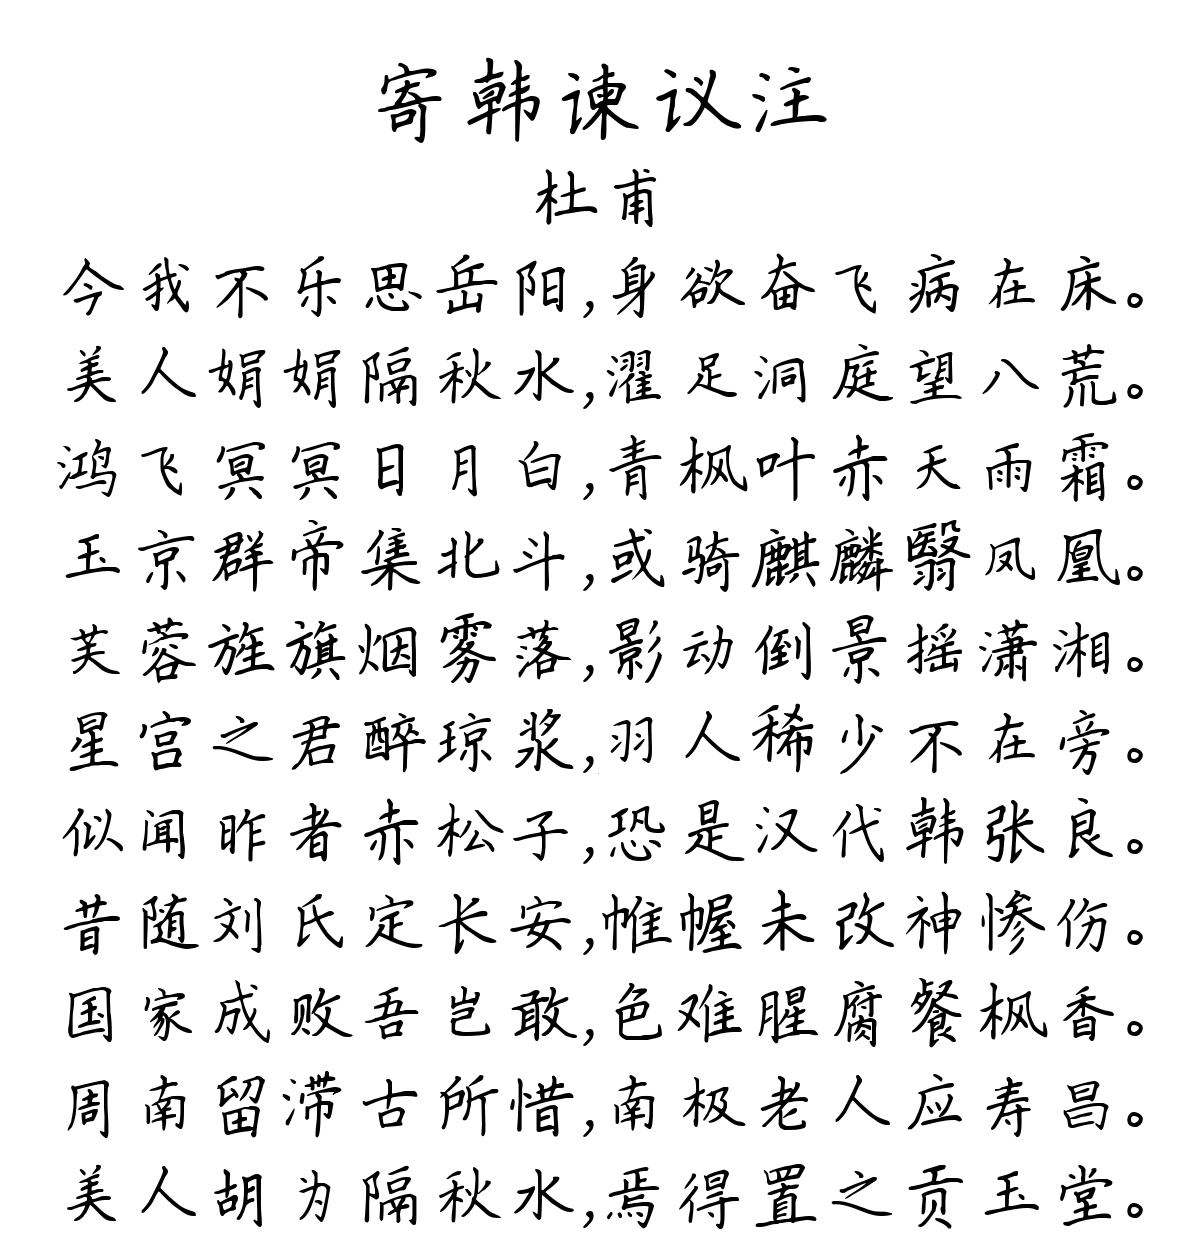 寄韩谏议注
杜甫
今我不乐思岳阳,身欲奋飞病在床。
美人娟娟隔秋水,濯足洞庭望八荒。
鸿飞冥冥日月白,青枫叶赤天雨霜。
玉京群帝集北斗,或骑麒麟翳凤凰。
芙蓉旌旗烟雾落,影动倒景摇潇湘。
星宫之君醉琼浆,羽人稀少不在旁。
似闻昨者赤松子,恐是汉代韩张良。
昔随刘氏定长安,帷幄未改神惨伤。
国家成败吾岂敢,色难腥腐餐枫香。
周南留滞古所惜,南极老人应寿昌。
美人胡为隔秋水,焉得置之贡玉堂。